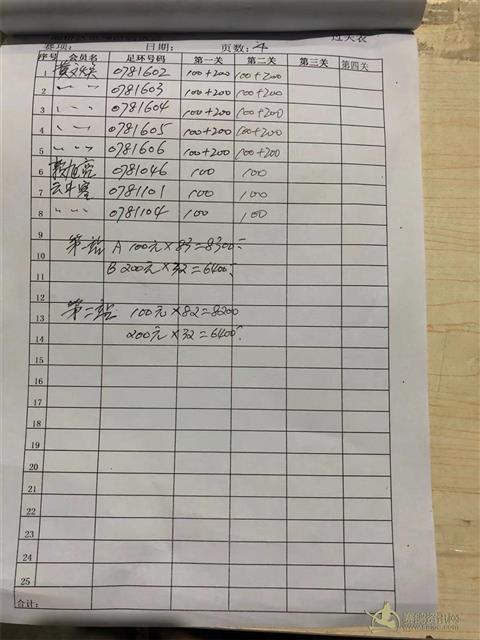 过关表
赛项： 日期： 页数：
序号 会员名 足环号码 第一关 第二关 第三关 第四关
1 黄文兴 0781602 100+200 100+200
2 〃 〃 0781603 100+200 100+200
3 〃 〃 0781604 100+200 100+200
4 〃 〃 0781605 100+200 100+200
5 〃 〃 0781606 100+200 100+200
6 0781046 100 100
7 0781101 100 100
8 〃 〃 0781104 100 100
9
10 第一站 A 100元×83=8300
11 B 200元×32=6400
12
13 第二站 100元×82=8200
14 200元×32=6400
15
16
17
18
19
20
21
22
23
24
25
合计：
赛鸽资讯网